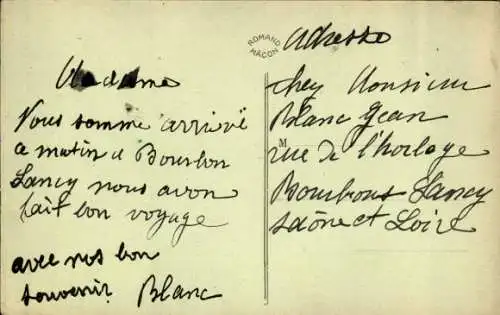 Madame
Vous somme arrivé
ce matin a Bourbon
Lancy nous avon
fait bon voyage
avec nos bon
souvenir Blanc
ROMAND
MACON
Adresse
chez Monsieur
Blanc Jean
M
rue de l'horloge
Bourbons Lancy
saône et Loire